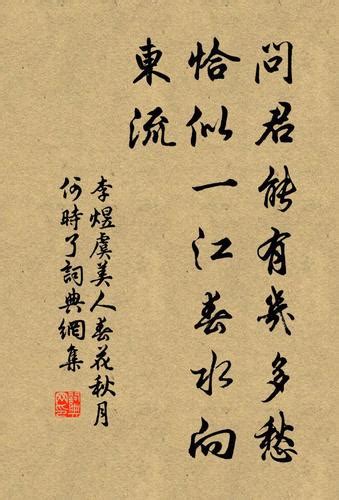 問君能有幾多愁
恰似一江春水向
東流
李煜虞美人春花秋月
何時了詞典網集